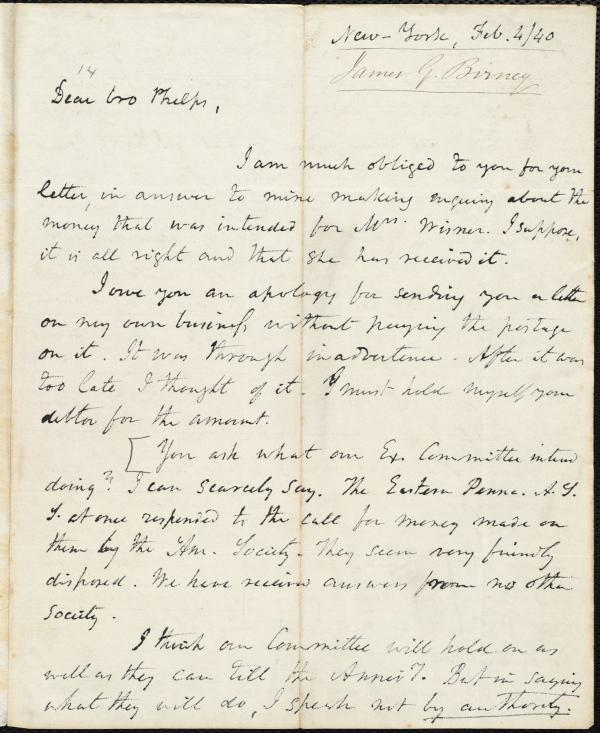 New-York, Feb. 4/40
James G. Birney
14
Dear bro Phelps,
I am much obliged to you for your
letter, in answer to mine making enquiry about the
money that was intended for Mrs. Wisner. I suppose,
it is all right and that she has received it.
I owe you an apology for sending you a letter
on my own business without paying the postage
on it. It was through inadvertence. After it was
too late I thought of it. I must hold myself your
debtor for the amount.
[You ask what our Ex. Committee intend
doing? I can scarcely say. The Eastern Penna. A. S.
S. at once responded to the call for money made on
them by the Am. Society. They seem very friendly
disposed. We have receivd answers from no other
Society.
I think our Committee will hold on as
well as they can till the Annivy. But in saying
what they will do, I speak not by authority.